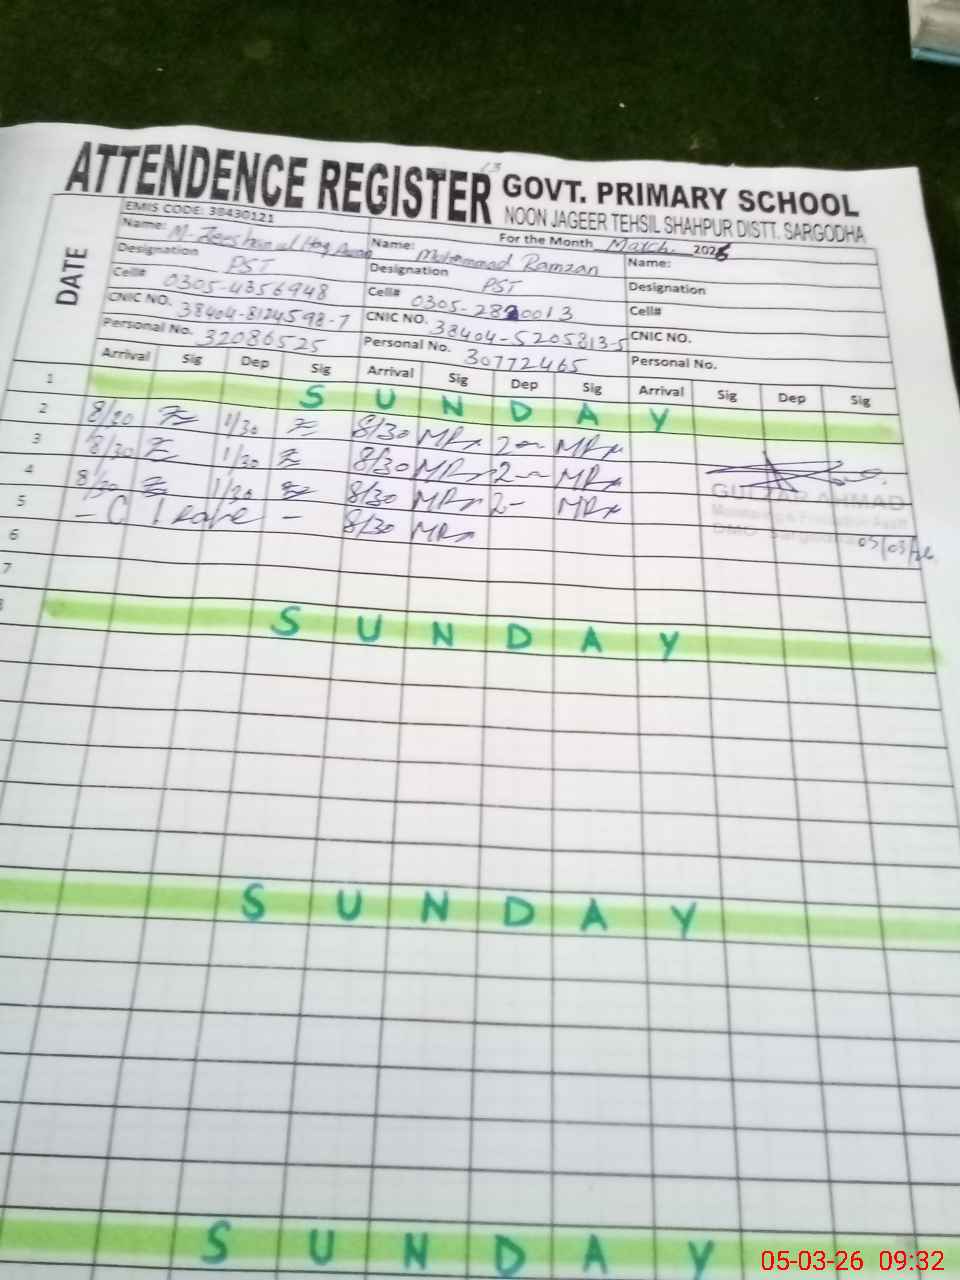 ATTENDENCE REGISTER GOVT. PRIMARY SCHOOL
NOON JAGEER TEHSIL SHAHPUR DISTT. SARGODHA
EMIS CODE: 38430121 For the Month March 2026
DATE
Name: M. Zeeshan ul Haq Awan Name: Muhammad Ramzan Name:
Designation PST Designation PST Designation
Cell# 0305-4356948 Cell# 0305-2820013 Cell#
CNIC NO. 38404-8124598-7 CNIC NO. 38404-5205813-5 CNIC NO.
Personal No. 32086525 Personal No. 30772465 Personal No.
Arrival Sig Dep Sig Arrival Sig Dep Sig Arrival Sig Dep Sig
1 SUNDAY
2 8/30 1/30 8/30 MR 2 MR
3 8/30 1/30 8/30 MR 2 MR
4 8/30 1/30 8/30 MR 2- MR
5 - C leave - 8/30 MR
GULZAR AHMAD
DMO Sargodha 05/03/26
6
7
8 SUNDAY
SUNDAY
SUNDAY
05-03-26 09:32